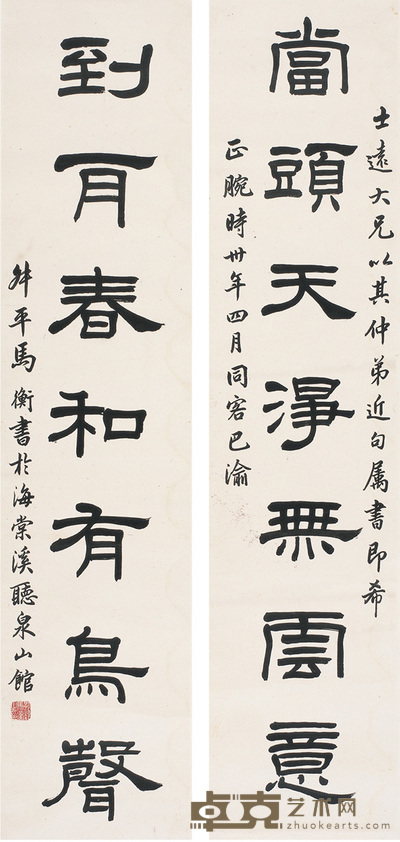 士遠大兄以其仲弟近句属書即希
當頭天淨無雲意
正腕時卅年四月同客巴渝
到耳春和有鳥聲
叔平馬衡書於海棠溪聽泉山館
卓克艺术网
zhuokearts.com